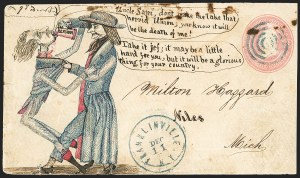 Uncle Sam, don't make me take that
horrid Union, you know it will
be the death of me!
Take it Jef; it may be a little
hard for you, but it will be a glorious
thing for your country.
Milton Haggard
Niles
Mich.
FRANKLINVILLE
N.Y.